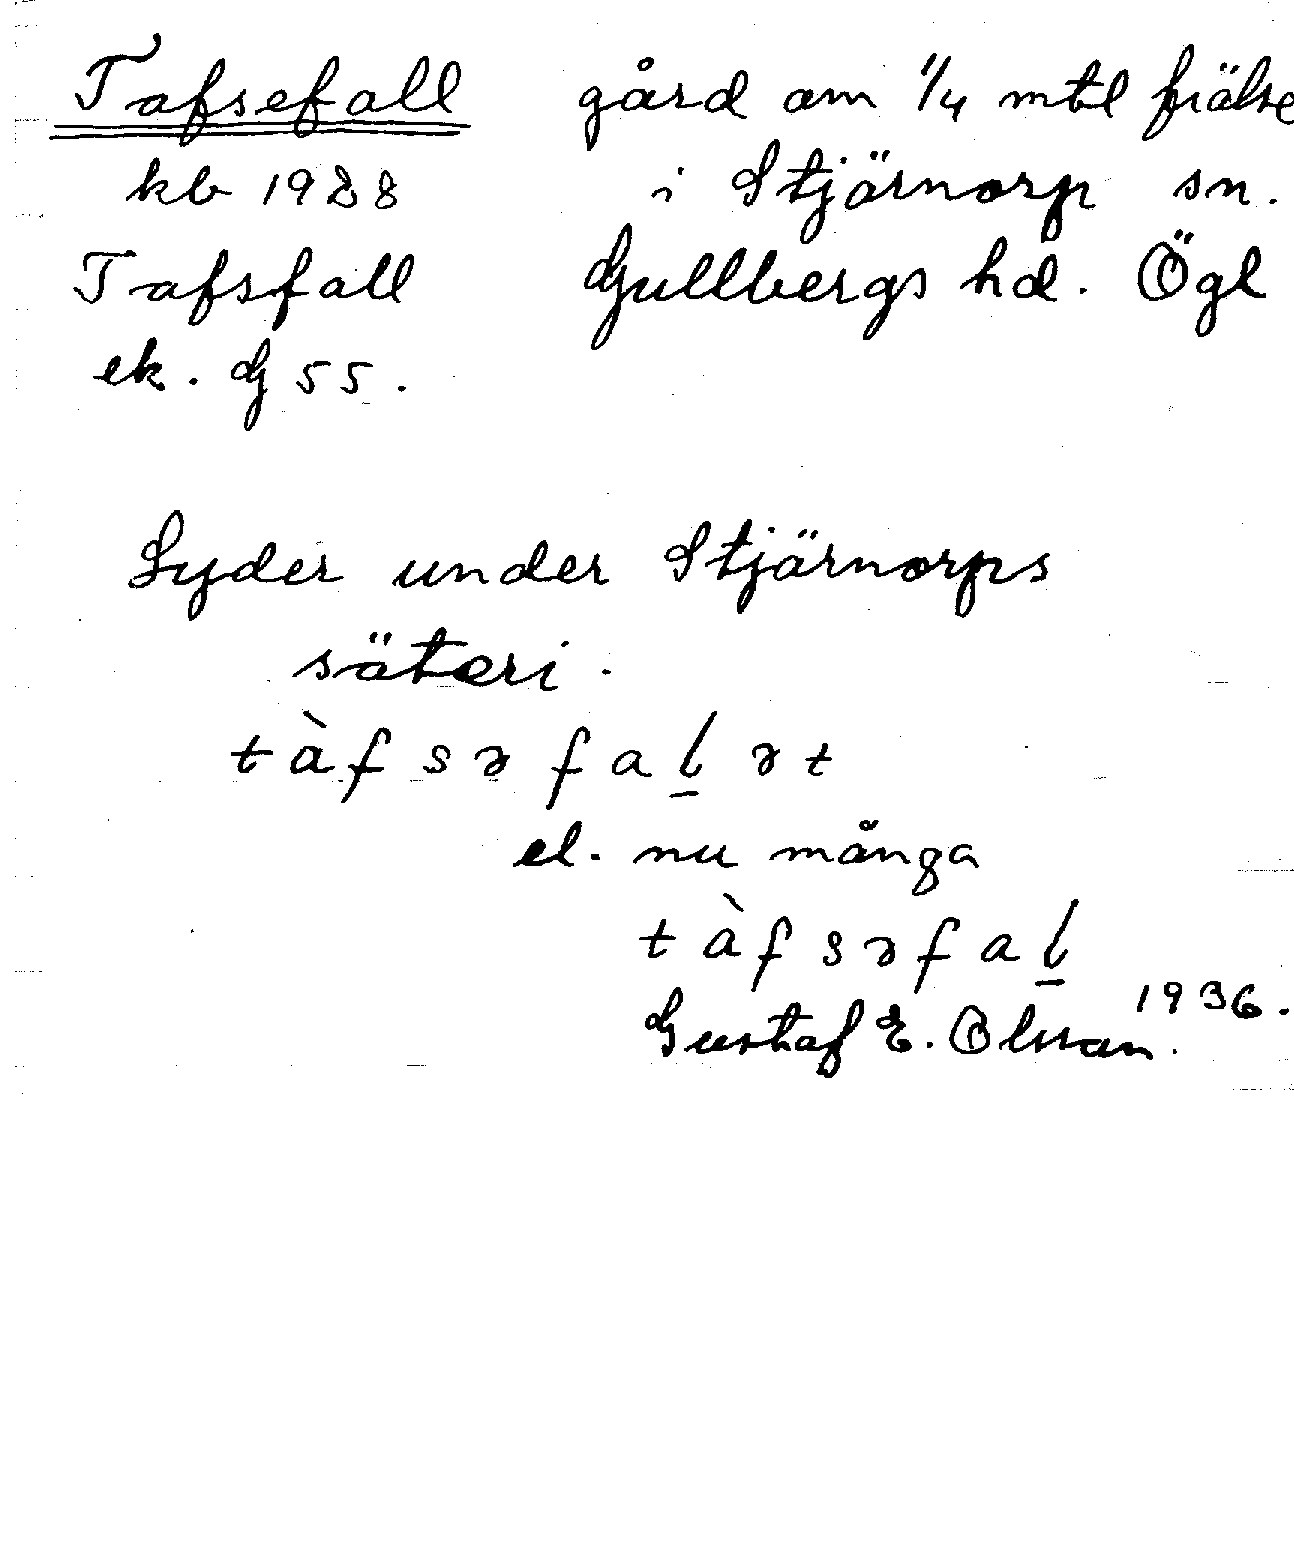 Tafsefall gård om 1/4 mtl frälse
kb 1928 i Stjärnorp sn.
Tafsfall Gullbergs hd. Ögl
ek. G 55.
Lyder under Stjärnorps
säteri.
tàfsəfaḻət
el. nu många
tàfsəfaḻ
1936.
Gustaf E. Olsson.